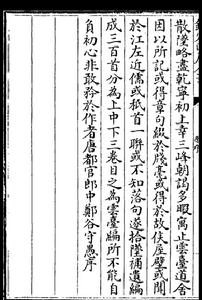 散墜略盡乾寧初上幸三峰朝謁多暇寓止雲臺道舍
因以所記或得章句綴於牋毫或得於故侯屋壁或聞
於江左近儒或秪省一聯或不知落句遂拾墜補遺編
成三百首分為上中下三卷目之為雲臺編所不能自
負初心非敢矜於作者唐都官郎中鄭谷守愚序